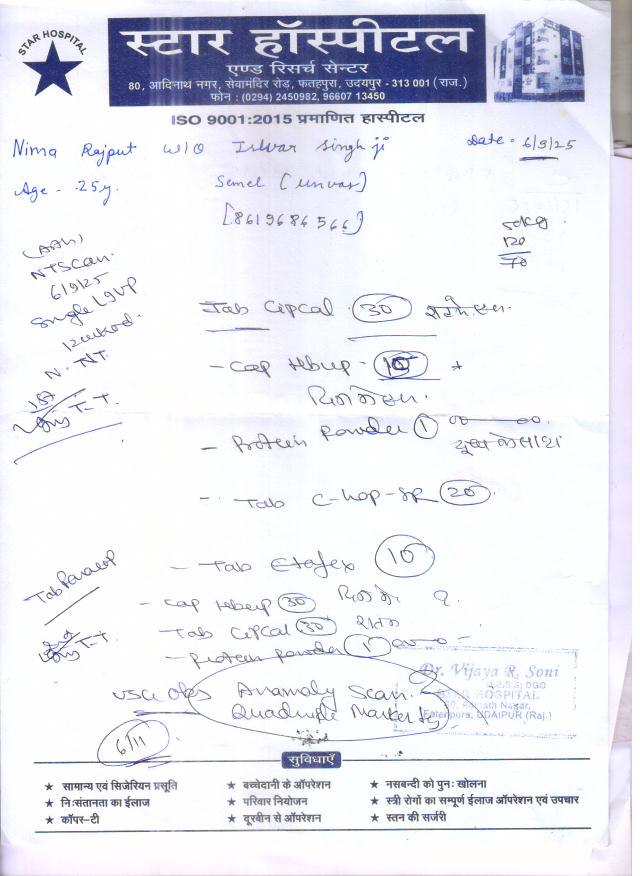 STAR HOSPITAL
स्टार हॉस्पीटल
एण्ड रिसर्च सेन्टर
80, आदिनाथ नगर, सेवामंदिर रोड, फतहपुरा, उदयपुर - 313 001 (राज.)
फोन : (0294) 2450982, 96607 13450
ISO 9001:2015 प्रमाणित हास्पीटल
Nima Rajput W/O Ishvar Singh ji Date - 6/9/25
Age - 25y. Semel (unvas)
[8619684566]
50kg
120
70
NTScan.
6/9/25
Single
N. NT.
1st
T-T.
Tab Cipcal 30
- Cap Hbup - 10
- Protein Powder 1
- Tab C-hop-SR 20
- Tab Etofex 10
- Cap Hbup 30
Tab Cipcal 30
- Protein Powder 1
T-T.
USG obs Anamoly Scan.
Quadruple Marker
6/11
Dr. Vijaya R. Soni
M.B.B.S; DGO
STAR HOSPITAL
80, Adinath Nagar,
Fatehpura, UDAIPUR (Raj.)
सुविधाएँ
★ सामान्य एवं सिजेरियन प्रसूति ★ बच्चेदानी के ऑपरेशन ★ नसबन्दी को पुनः खोलना
★ निःसंतानता का ईलाज ★ परिवार नियोजन ★ स्त्री रोगों का सम्पूर्ण ईलाज ऑपरेशन एवं उपचार
★ कॉपर-टी ★ दूरबीन से ऑपरेशन ★ स्तन की सर्जरी